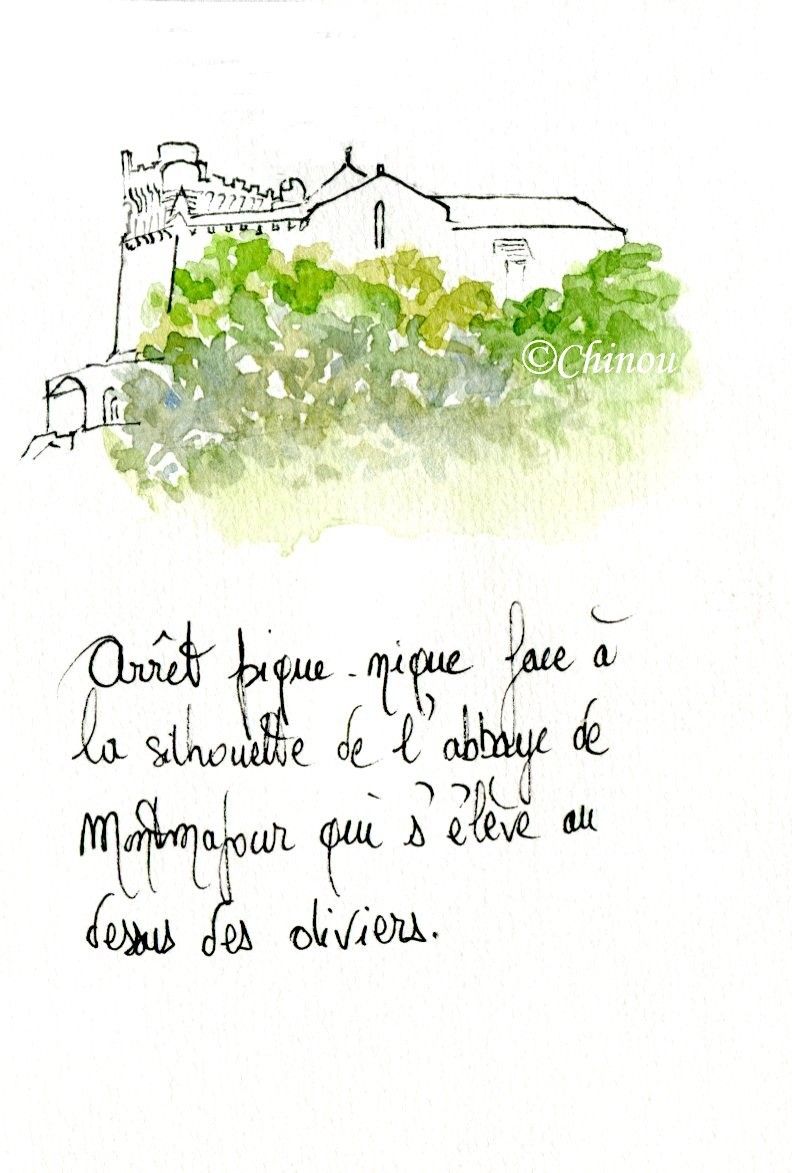 ©Chinou
Arrêt pique-nique face à
la silhouette de l'abbaye de
Montmajour qui s'élève au
dessus des oliviers.